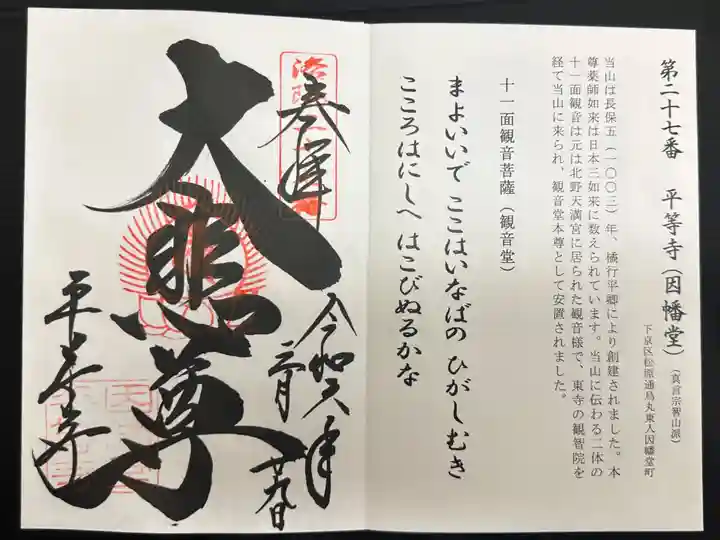 第二十七番　平等寺（因幡堂）（真言宗智山派）
下京区松原通烏丸東入因幡堂町
当山は長保五（一〇〇三）年、橘行平卿により創建されました。本
尊薬師如来は日本三如来に数えられています。当山に伝わる二体の
十一面観音は元は北野天満宮に居られた観音様で、東寺の観智院を
経て当山に来られ、観音堂本尊として安置されました。
十一面観音菩薩（観音堂）
まよいいで ここはいなばの ひがしむき
こころはにしへ はこびぬるかな
奉拝
令和六年
大悲尊
平等寺